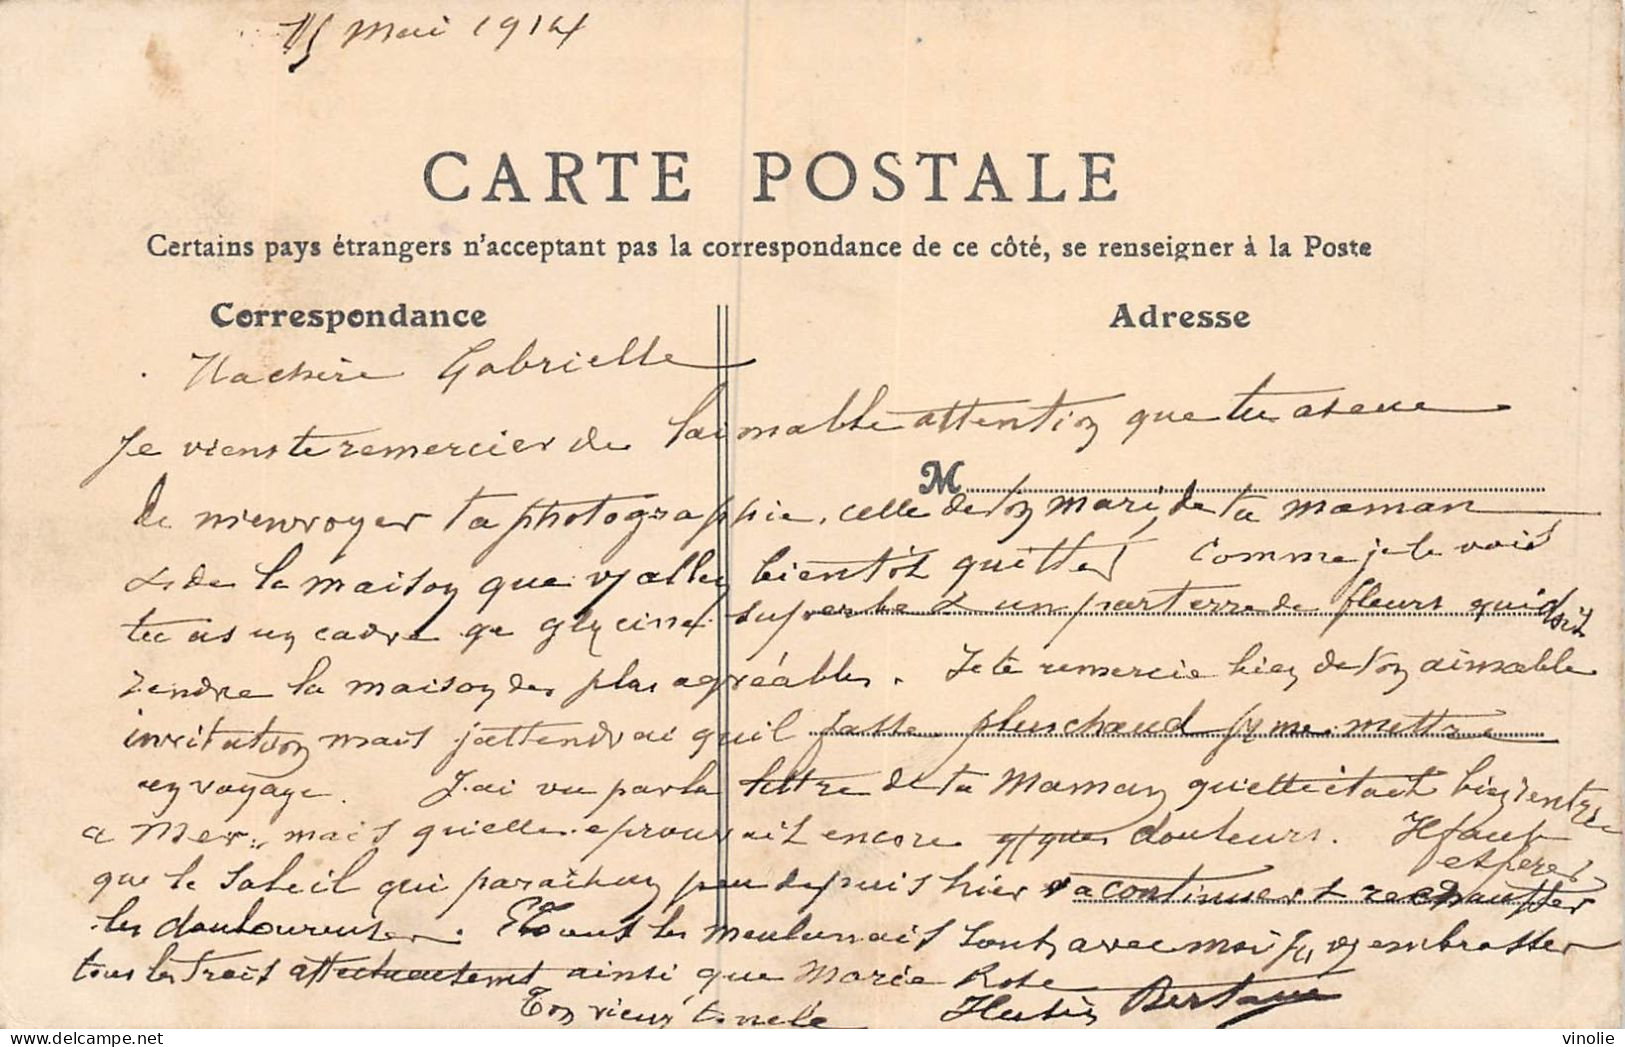 15 Mai 1914
CARTE POSTALE
Certains pays étrangers n'acceptant pas la correspondance de ce côté, se renseigner à la Poste
Correspondance
Adresse
Ma chère Gabrielle
Je viens te remercier de l'aimable attention que tu as eue
M
de m'envoyer ta photographie, celle de ton mari, de ta maman
& de la maison que vs allez bientôt quitter Comme je le vois
tu as un cadre de glycines superbe & un parterre de fleurs qui doit
rendre la maison des plus agréables. Je te remercie bien de ton aimable
invitation mais j'attendrai qu'il fasse plus chaud pr me mettre
en voyage. J'ai vu par la lettre de ta Maman qu'elle était bien rentrée
a Mer, mais qu'elle éprouvait encore qques douleurs. Il faut
espérer
que le Soleil qui parait un peu depuis hier va continuer & réchauffer
les douloureuses. Tous les meulunais sont avec moi pr vs embrasser
tous les trois affectueusement ainsi que Marie Rose
Ton vieux